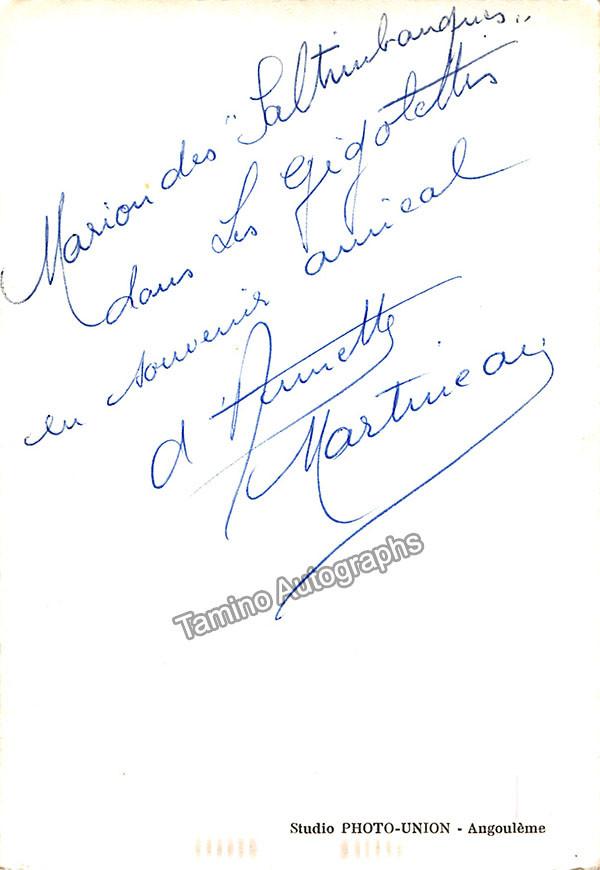 Marion des "Saltimbanques"
dans Les Gigolettes
en souvenir amical
d'Annette
Martineau
Tamino Autographs
Studio PHOTO-UNION - Angoulême